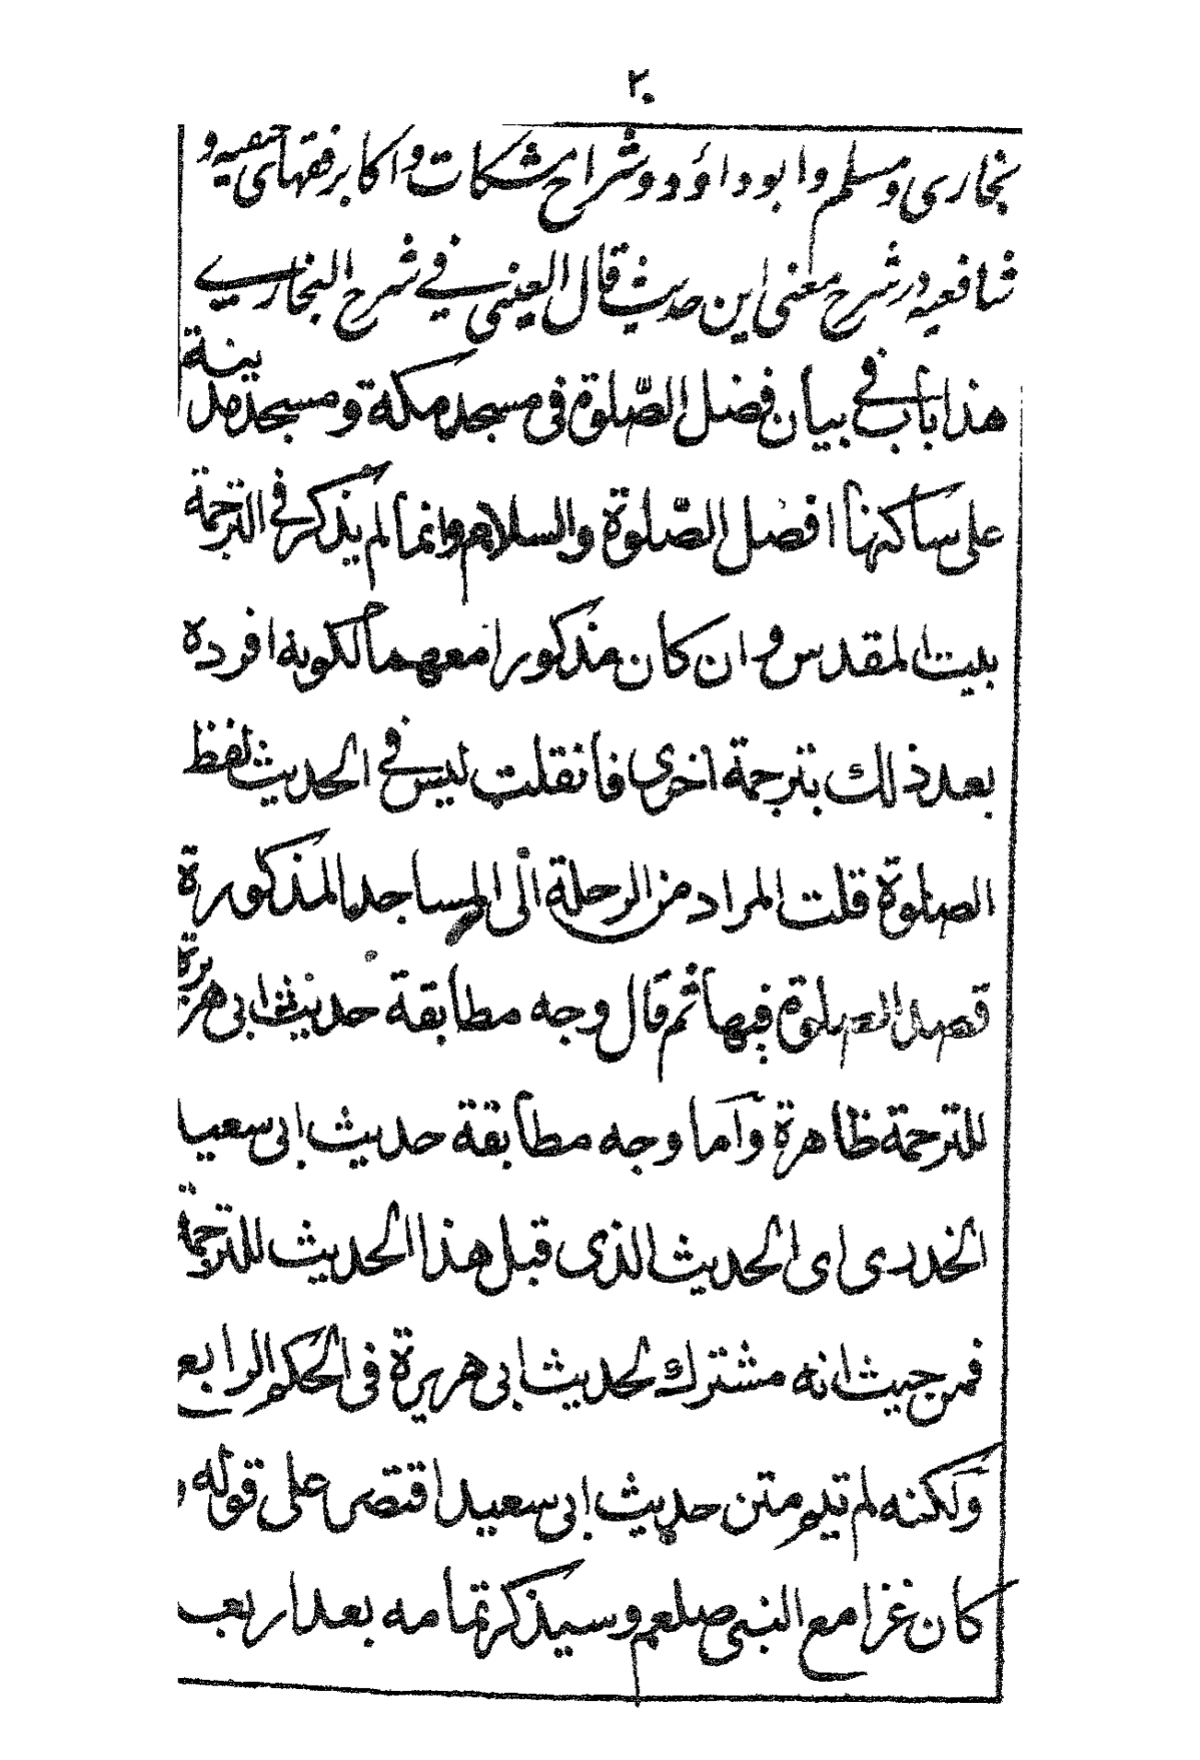 ٢٠
بخاری و مسلم و ابو داؤد و شراح مشکات و اکابر فقهای حنفیه و
شافعیه در شرح معنی این حدیث قال العینی فی شرح البخاری
هذا باب فی بیان فضل الصّلوة فی مسجد مکة و مسجد مدینة
علی ساکنها افضل الصّلوة والسلام وانما لم یذکر فی الترجمة
بیت المقدس و ان کان مذکورا معهما لکونه افرده
بعد ذلك بترجمة اخری فان قلت لیس فی الحدیث لفظ
الصلوة قلت المراد من الرحلة الی المساجد المذکورة
قصد الصلوة فیها ثم قال وجه مطابقة حدیث ابی هریرة
للترجمة ظاهرة وآما وجه مطابقة حدیث ابی سعید
الخدری ای الحدیث الذی قبل هذا الحدیث للترجمة
فمن حیث انه مشترك لحدیث ابی هریرة فی الحکم الرابع
ولکنه لم یتم متن حدیث ابی سعید اقتصر علی قوله و
کان غزا مع النبی صلعم و سیذکر تمامه بعد اربعـ